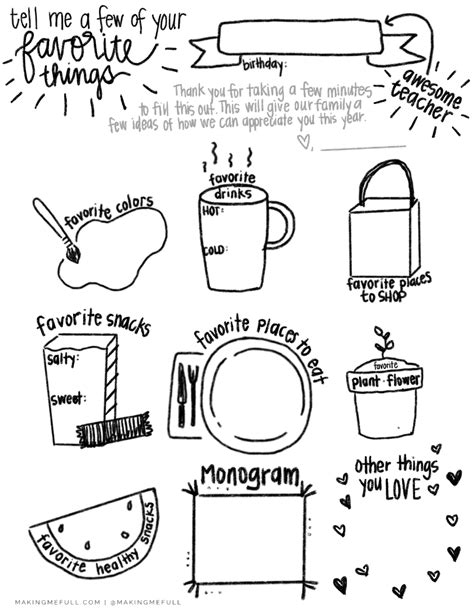 tell me a few of your
favorite
things
birthday:
awesome
teacher
Thank you for taking a few minutes
to fill this out. This will give our family a
few ideas of how we can appreciate you this year.
♡,
favorite colors
favorite
drinks
HOT:
COLD:
favorite places
to SHOP
favorite snacks
salty:
sweet:
favorite places to eat
favorite
plant-flower
favorite healthy snacks
Monogram
other things
you LOVE
MAKINGMEFULL.COM | @MAKINGMEFULL